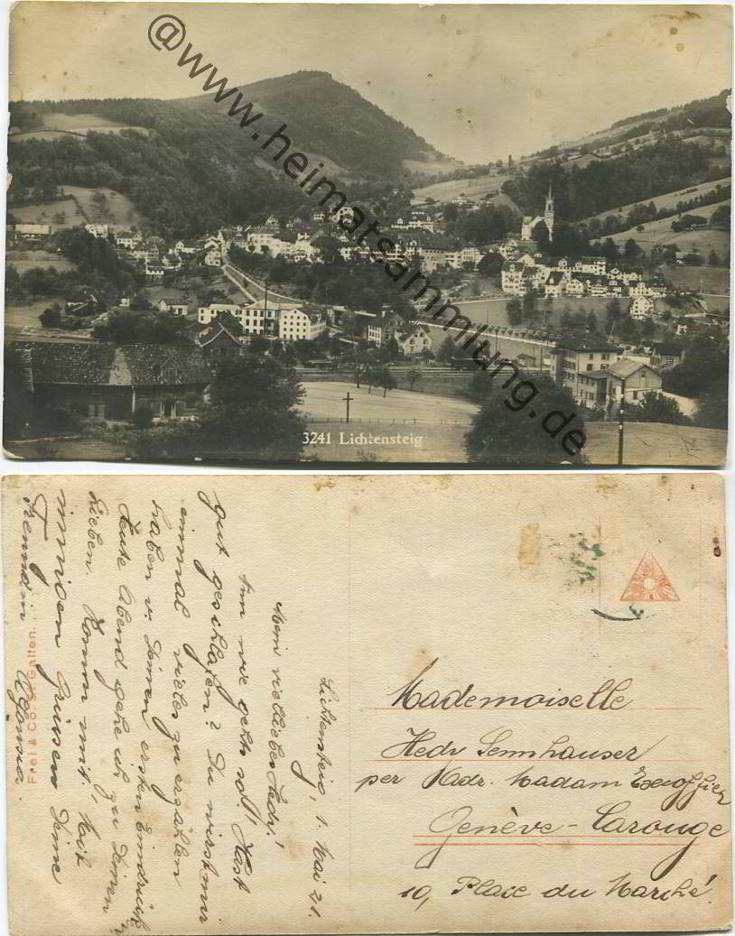 @www.heimatsammlung.de
3241 Lichtensteig
Lichtensteig, 1. Mai 21.
Mein vielliebes Hedy!
Nun wie gehts so!! Hast
gut geschlafen? Du wirst mir
einmal vieles zu erzählen
haben v. Deinen ersten Eindrück
Heute Abend gehe ich zu Deinen
Lieben. Komm mit! Mit
innigen Grüssen Deine
Freundin
Frei & Co. St. Gallen.
Mademoiselle
Hedy Sennhauser
per Adr. Madam
Genève-Carouge
10, Place du Marché.